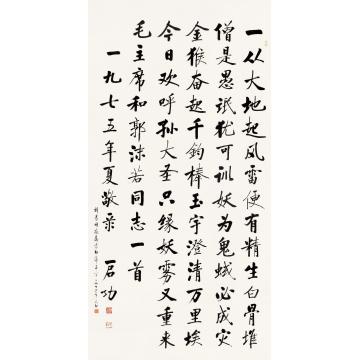 一从大地起风雷便有精生白骨堆
僧是愚氓犹可训妖为鬼蜮必成灾
金猴奋起千钧棒玉宇澄清万里埃
今日欢呼孙大圣只缘妖雾又重来
毛主席和郭沫若同志一首
一九七五年夏敬录 启功